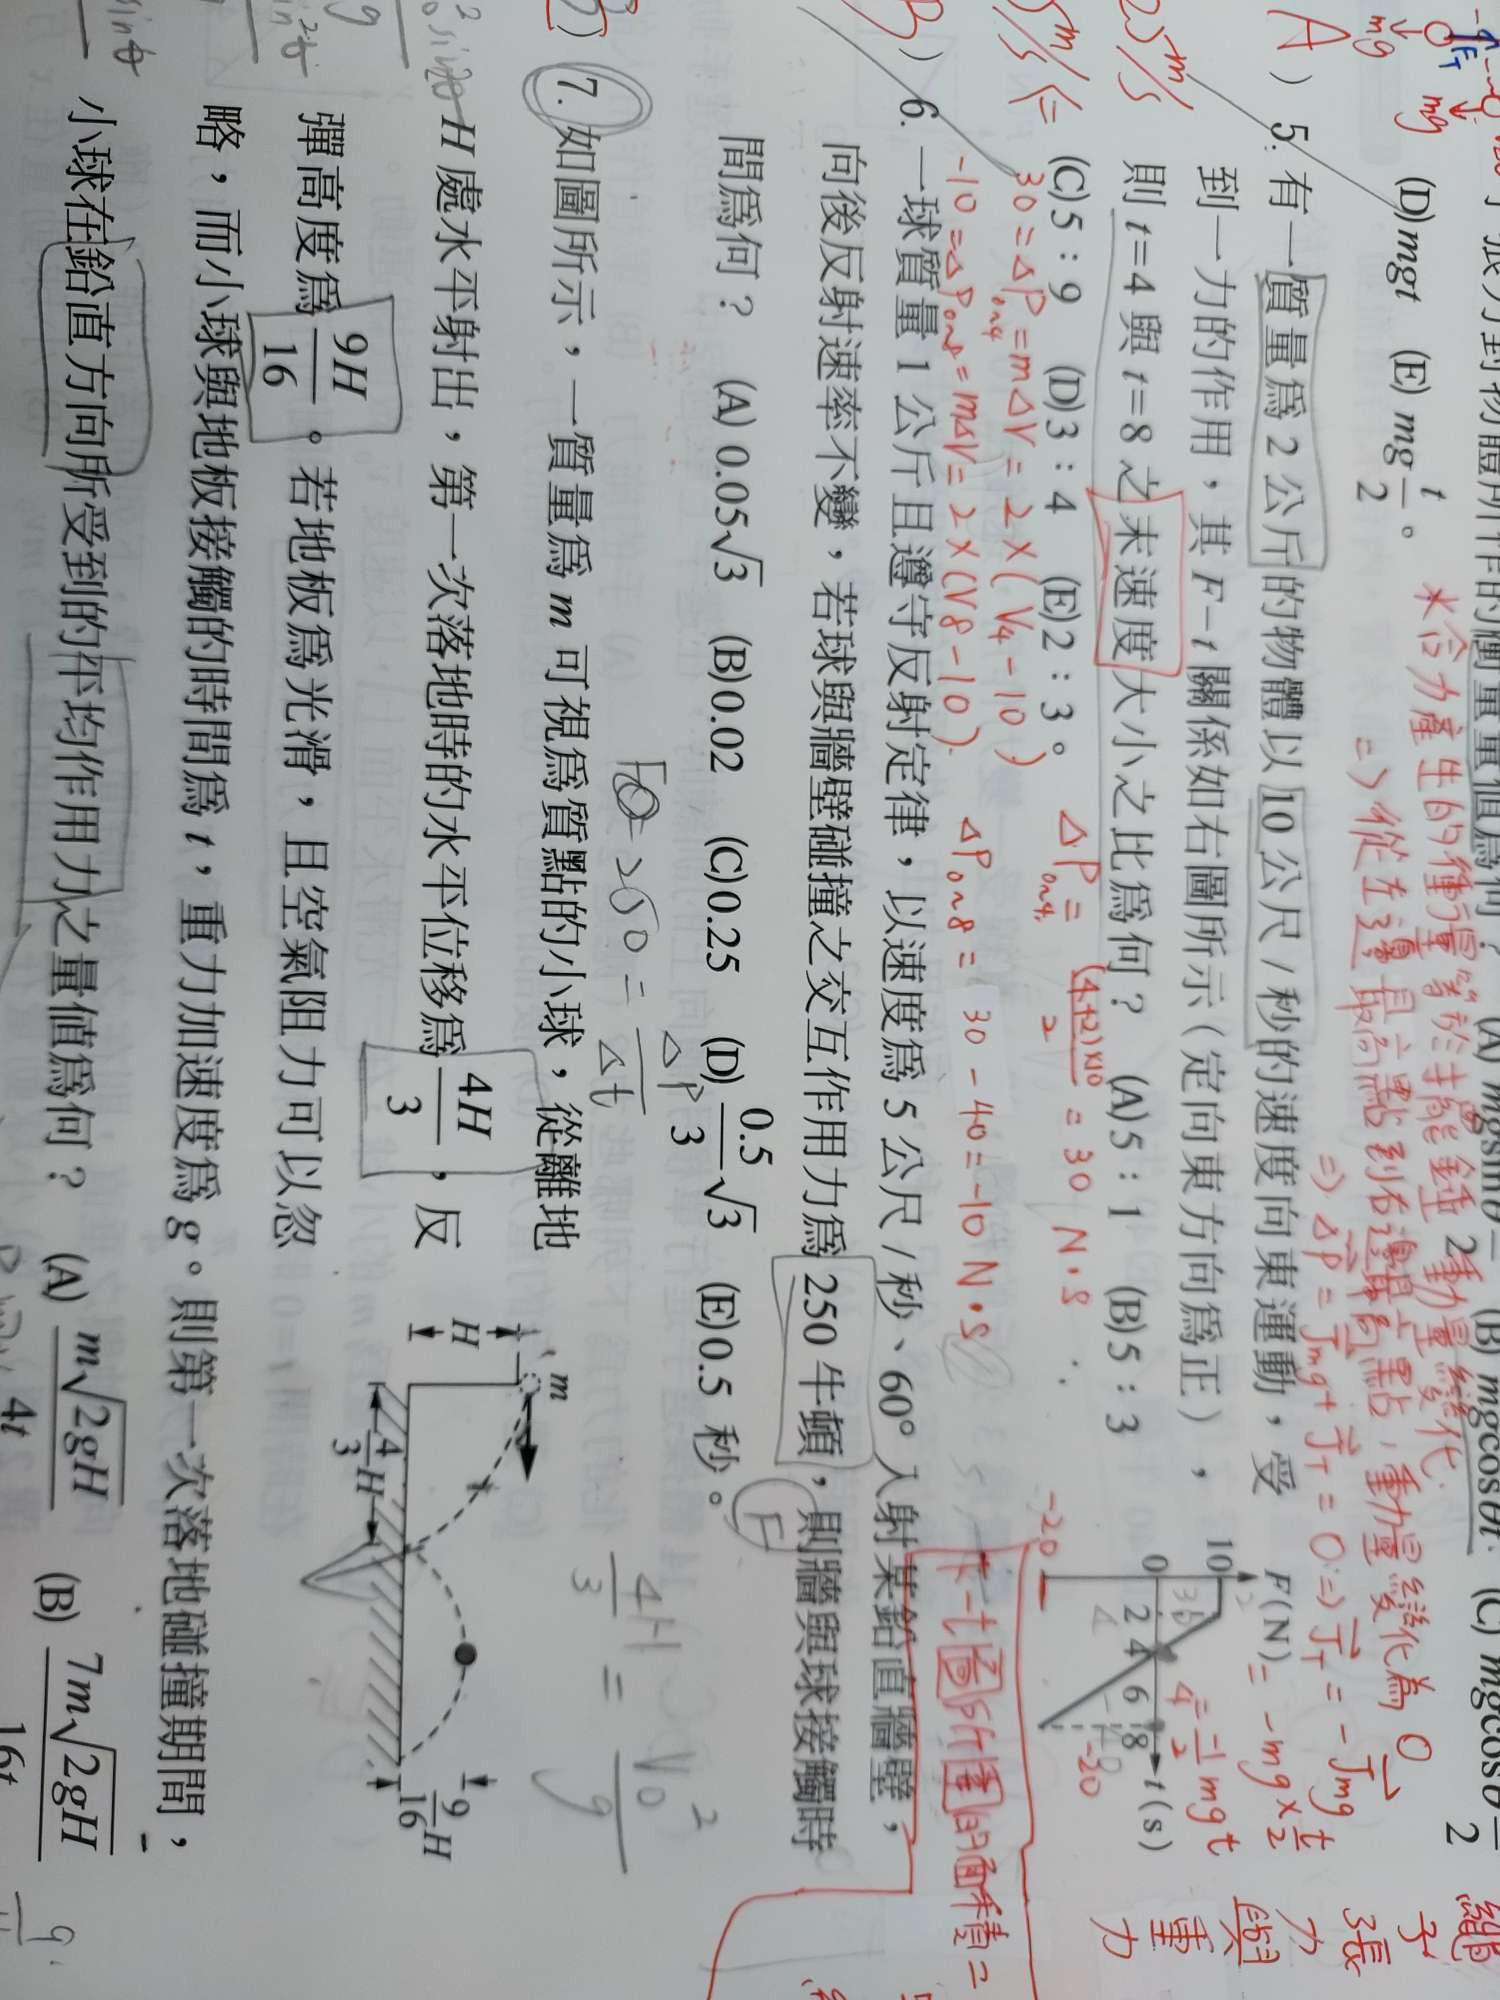 (D)mgt (E) mg t/2 。
5. 有一質量為 2 公斤的物體以 10 公尺 / 秒的速度向東運動，受
到一力的作用，其 F－t 關係如右圖所示（定向東方向為正），
則 t=4 與 t=8 之末速度大小之比為何？ (A)5：1 (B)5：3
(C)5：9 (D)3：4 (E)2：3。
F(N)
10
0 2 4 6 8 t(s)
-20
6. 一球質量 1 公斤且遵守反射定律，以速度為 5 公尺 / 秒、60° 入射某鉛直牆壁，
向後反射速率不變，若球與牆壁碰撞之交互作用力為 250 牛頓，則牆與球接觸時
間為何？ (A) 0.05√3 (B)0.02 (C)0.25 (D) 0.5/3 √3 (E)0.5 秒。
7. 如圖所示，一質量為 m 可視為質點的小球，從離地
H 處水平射出，第一次落地時的水平位移為 4H/3，反
彈高度為 9H/16。若地板為光滑，且空氣阻力可以忽
略，而小球與地板接觸的時間為 t，重力加速度為 g。則第一次落地碰撞期間，
小球在鉛直方向所受到的平均作用力之量值為何？ (A) m√2gH/4t (B) 7m√2gH/16t
m
H
4/3 H
9/16 H
*合力產生的衝量等於半錐鉛動量變化
=> 從左邊最高點到右邊最高點，動量變化為 0
=> ΔP = Jmg + JT = 0 => JT = -Jmg
= -mg × t/2
= -1/2 mgt
ΔPon4 = (4+2)×10/2 = 30 N·s
30 = ΔPon4 = mΔV = 2×(V4-10)
ΔPon8 = 30 - 40 = -10 N·s
-10 = ΔPon8 = mΔV = 2×(V8-10)
F-t圖所圍的面積=
250 = ΔP/Δt